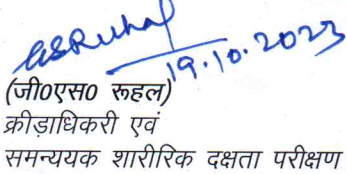 GSRuhal
19.10.2023
(जी0एस0 रूहल)
क्रीड़ाधिकरी एवं
समन्ययक शारीरिक दक्षता परीक्षण